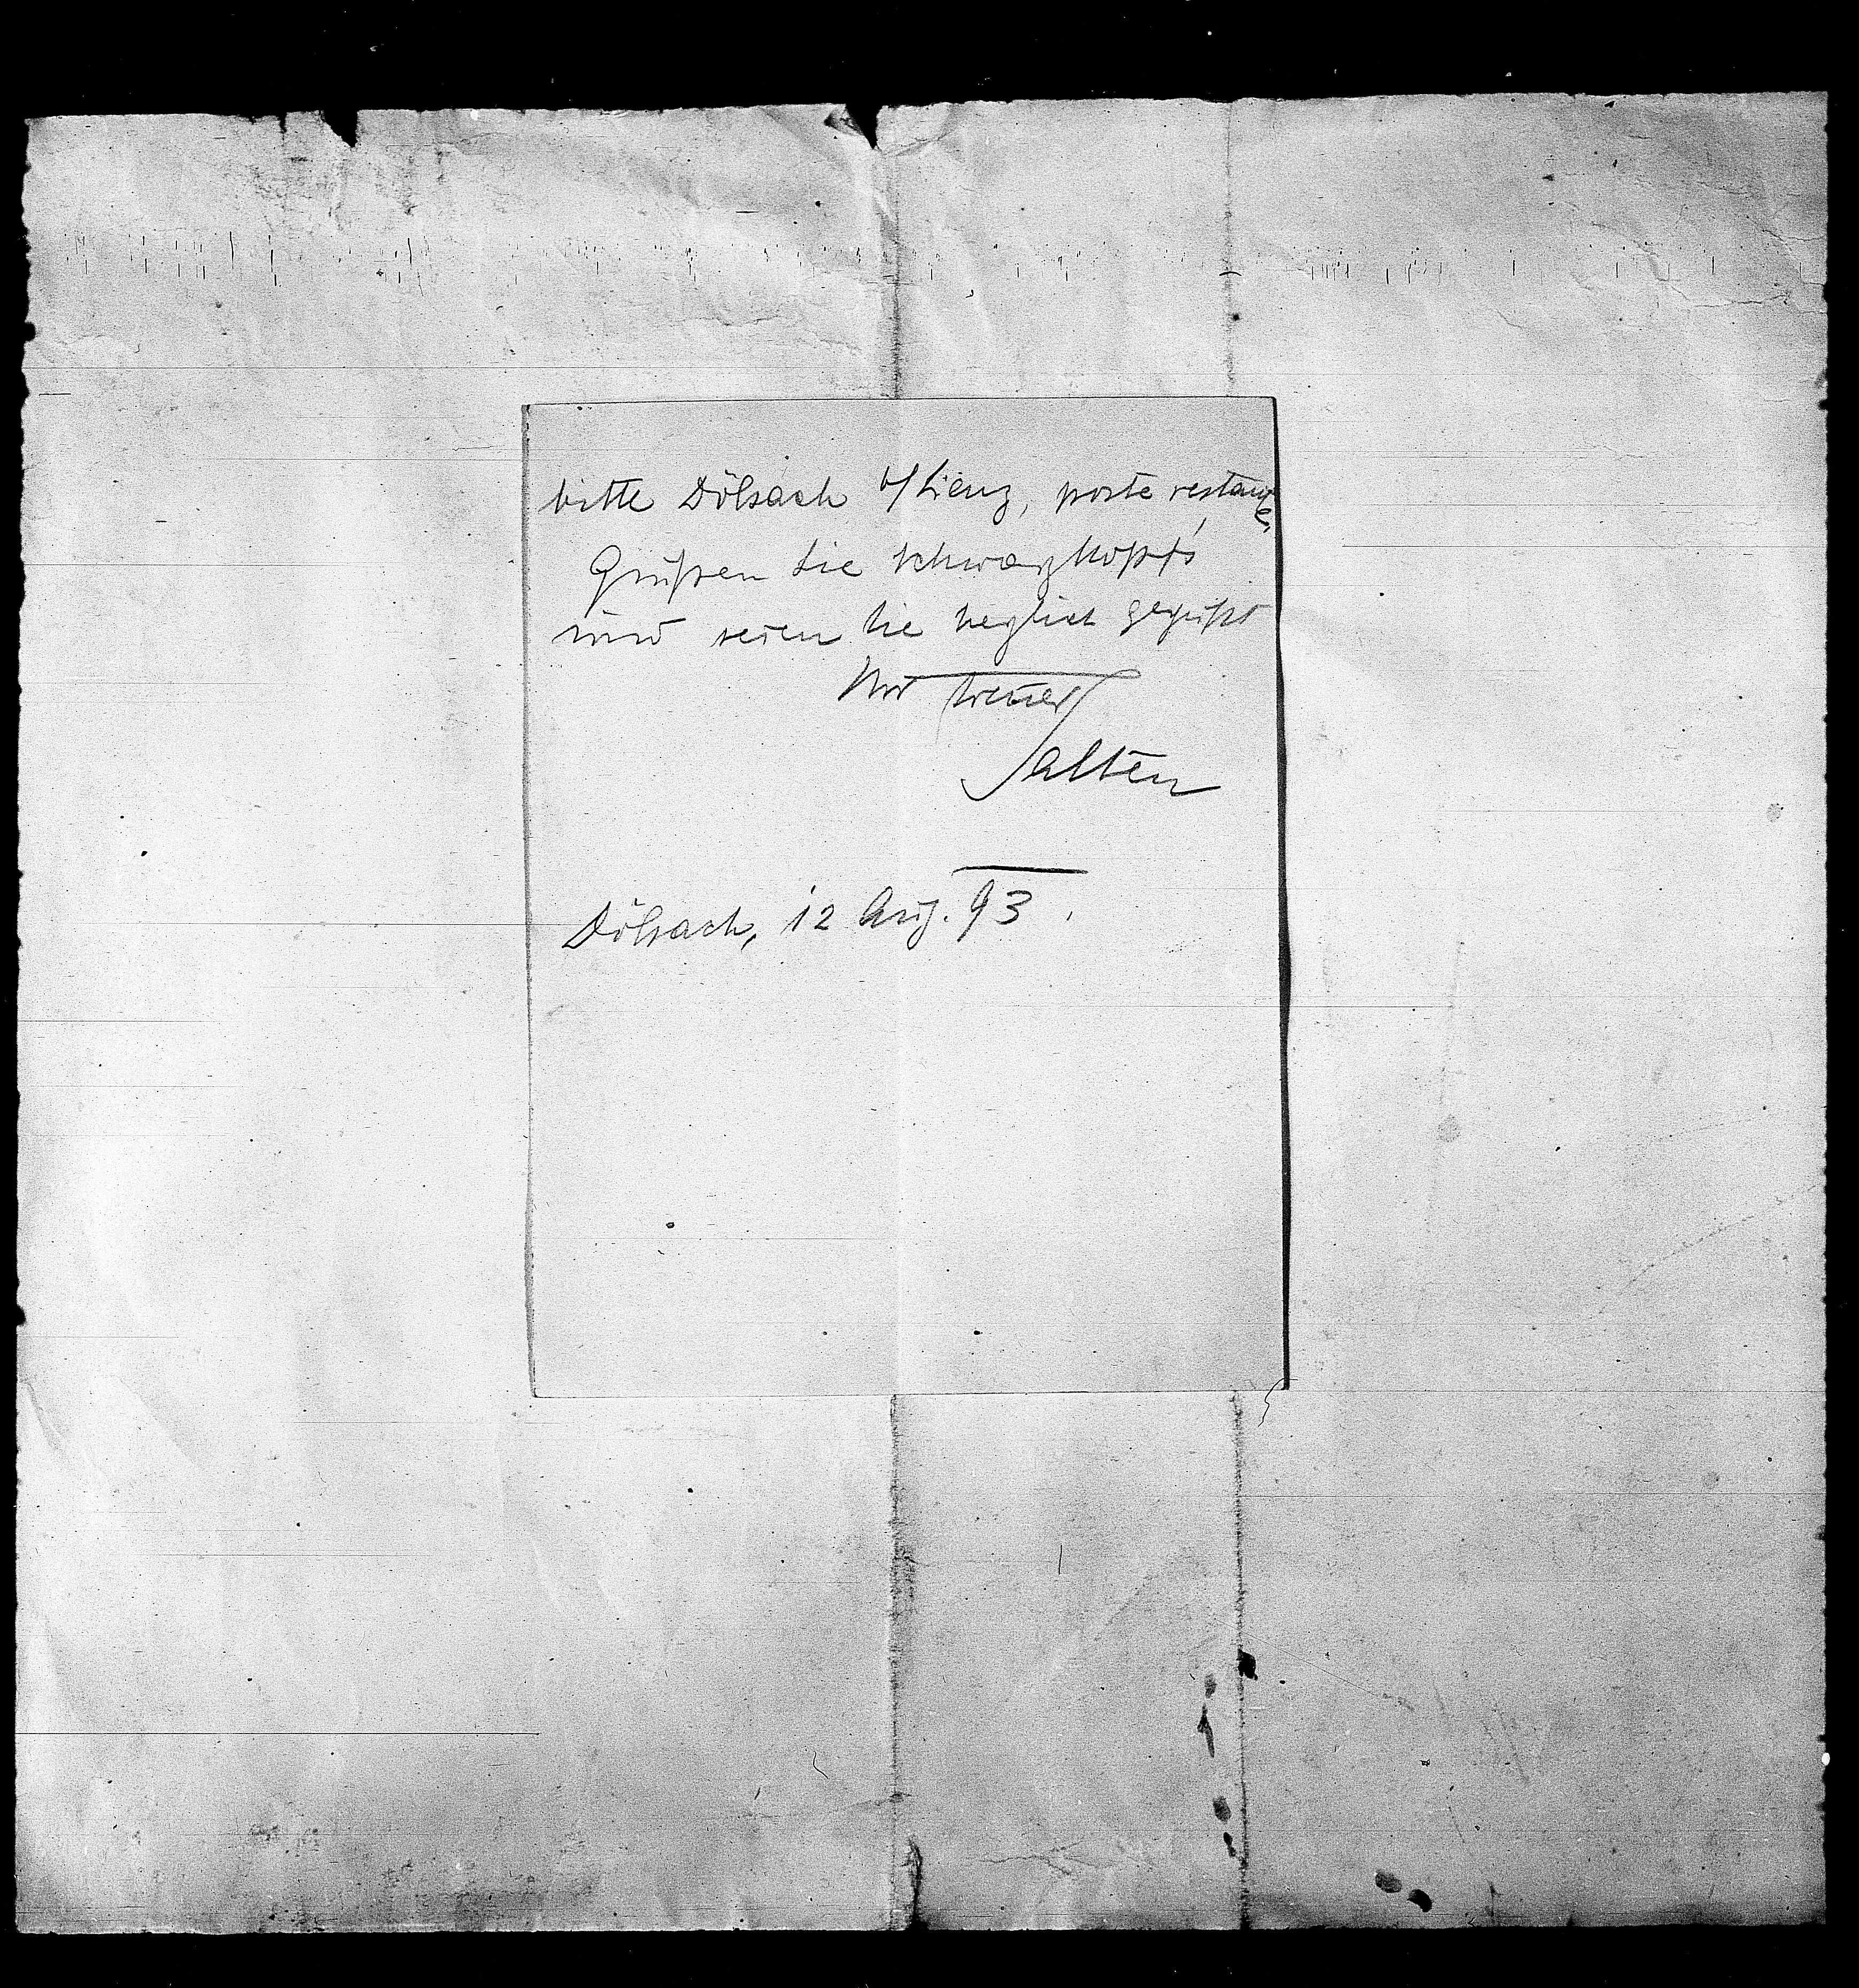 bitte Dölsach b/Lienz, poste restante.
Grüßen Sie Schwarzkopfs
und seien Sie herzlich gegrüßt
Ihr treuer
Salten
Dölsach, 12 Aug. 93.